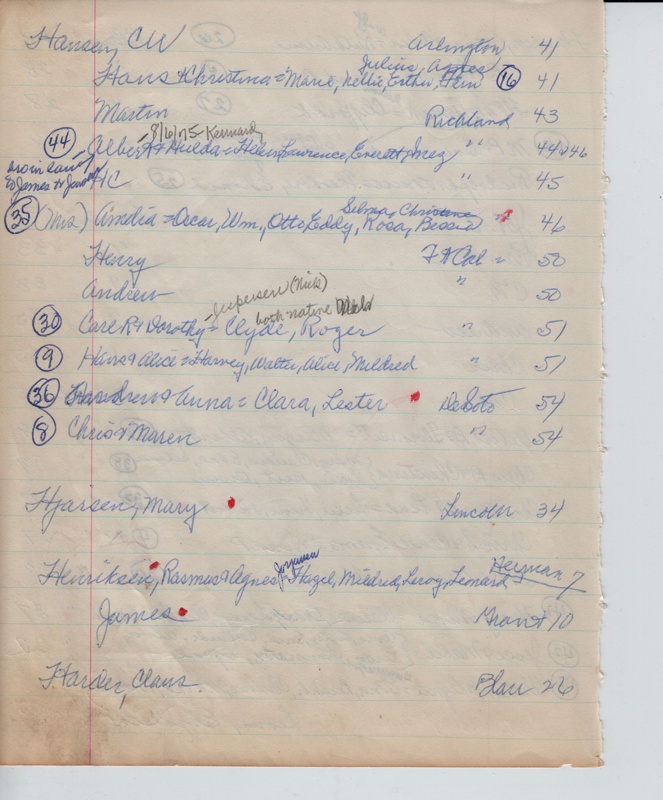 Hansen, CW Arlington 41
Julius, Agnes
Hans + Christina = Marie, Nellie, Esther, Fern 16 41
Martin Richland 43
8/6/75 Kennard
44 Albert + Hulda = Helen, Laurence, Everett, Inez " 44+46
HC " 45
to James +
Selma, Christine
35 (Mrs) Amelia = Oscar, Wm., Otto, Eddy, Rosa, Bessie " 46
Henry Ft Cal = 50
Andrew " 50
Jespersen (Nick)
both native Nebr
30 Carl R + Dorothy = Clyde, Roger " 51
9 Hans + Alice = Harvey, Walter, Alice, Mildred " 51
36 Andrew + Anna = Clara, Lester DeSoto 54
8 Chris + Maren " 54
Hjarsen, Mary Lincoln 34
Jorgensen
Henriksen, Rasmus + Agnes = Hazel, Mildred, Leroy, Leonard Herman 7
James Grant 10
Harder, Claus. Blair 26